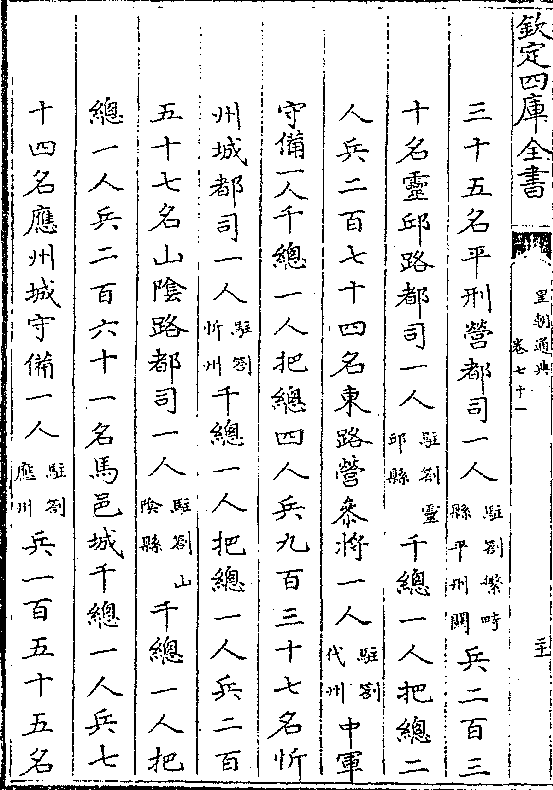 欽定四庫全書
皇朝通典
卷七十一
三十五名平刑營都司一人駐劄繁畤縣平刑關兵二百三
十名靈邱路都司一人駐劄靈邱縣千總一人把總二
人兵二百七十四名東路營叅將一人駐劄代州中軍
守備一人千總一人把總四人兵九百三十七名忻
州城都司一人駐劄忻州千總一人把總一人兵二百
五十七名山隂路都司一人駐劄山隂縣千總一人把
總一人兵二百六十一名馬邑城千總一人兵七
十四名應州城守備一人駐劄應州兵一百五十五名